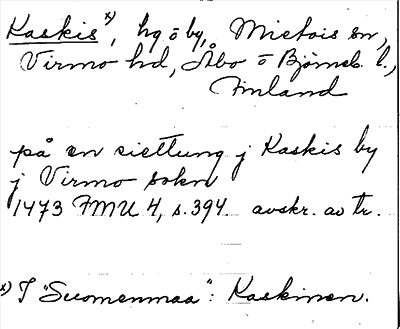 Kaskis x), hg o by, Mietois sn,
Virmo hd, Åbo o Björneb. l.,
Finland
på en siettung j Kaskis by
j Virmo sokn
1473 FMU 4, s. 394. avskr. av tr.
x) I "Suomenmaa": Kaskinen.